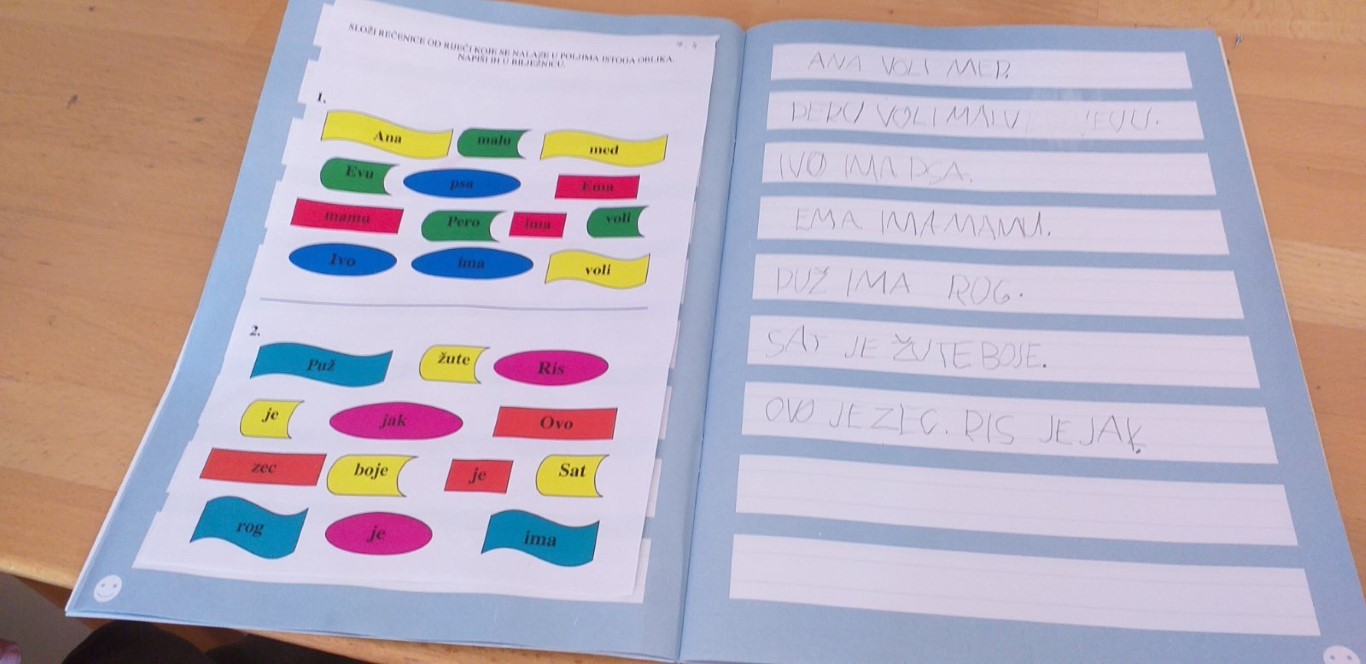 SLOŽI REČENICE OD RIJEČI KOJE SE NALAZE U POLJIMA ISTOGA OBLIKA.
NAPIŠI IH U BILJEŽNICU.
1.
Ana malu med
Evu psa Ema
mamu Pero ima voli
Ivo ima voli
2.
Puž žute Ris
je jak Ovo
zec boje je Sat
rog je ima
ANA VOLI MED.
VOLI MALU
IVO IMA PSA.
EMA IMA MAMU.
PUŽ IMA ROG.
SAT JE ŽUTE BOJE.
OVO JE ZEC. RIS JE JAK.